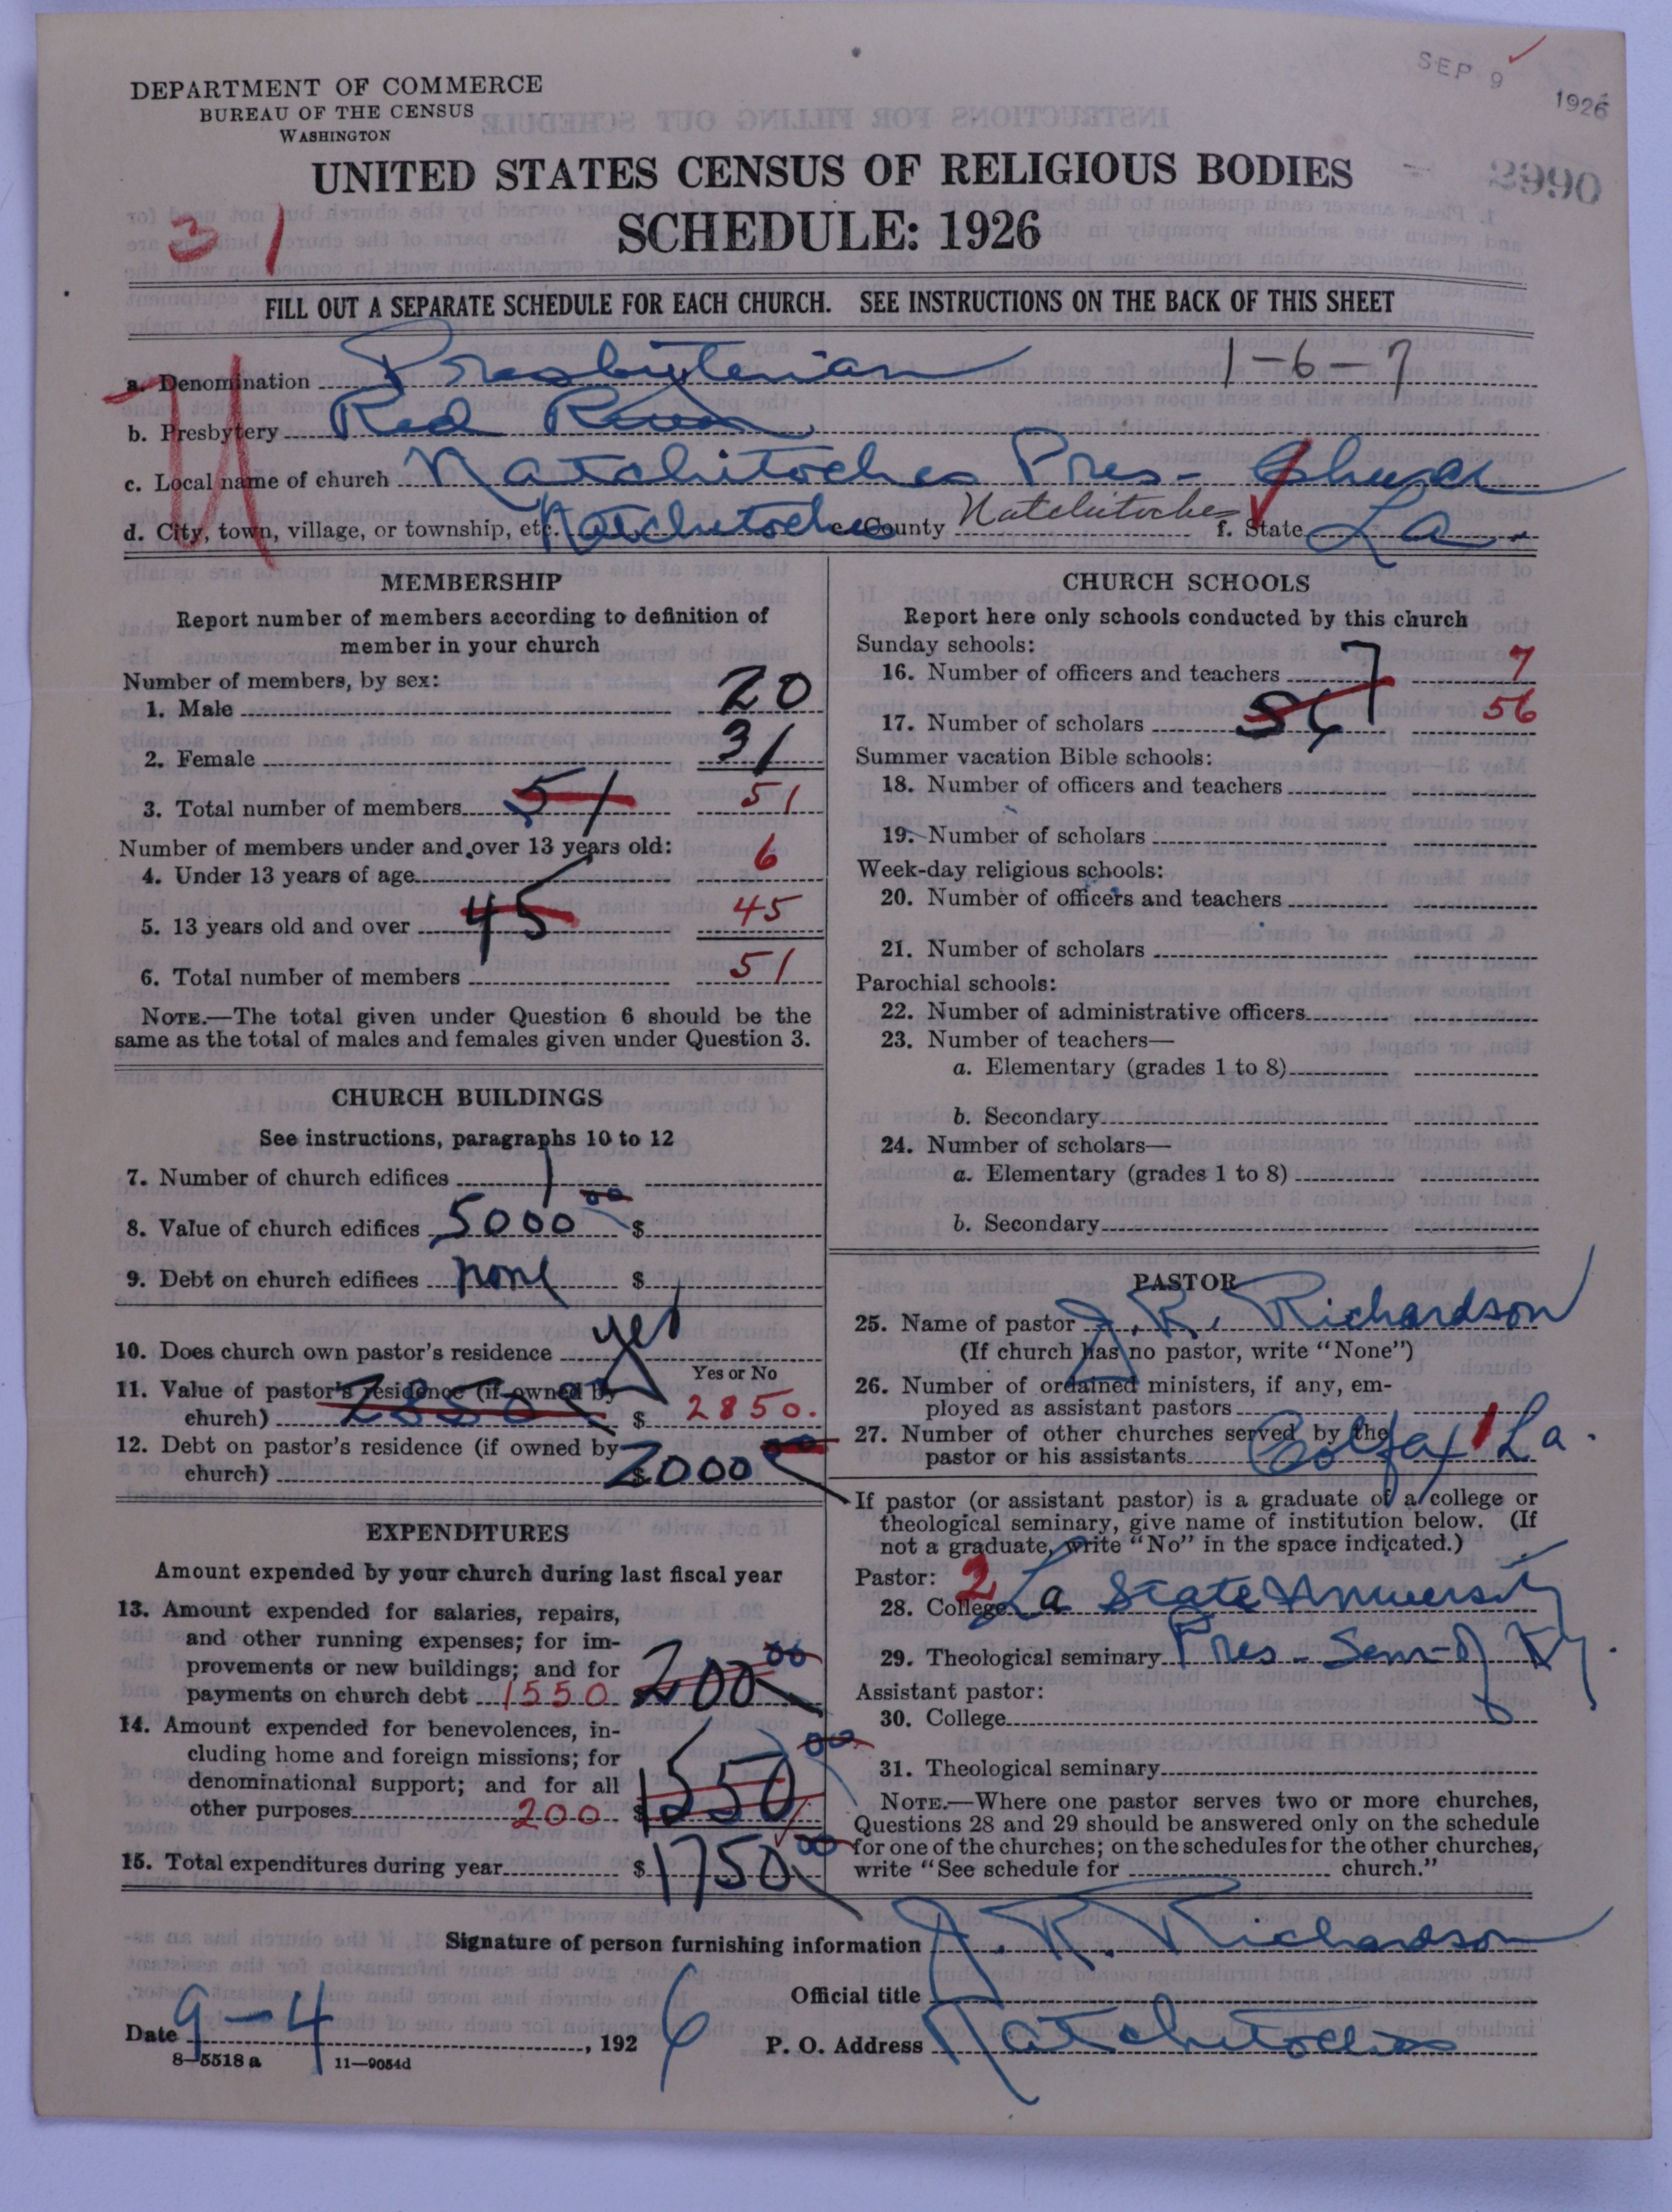 DEPARTMENT OF COMMERCE
BUREAU OF THE CENSUS
WASHINGTON
SEP 9 1926
22990
UNITED STATES CENSUS OF RELIGIOUS BODIES
SCHEDULE: 1926
31
FILL OUT A SEPARATE SCHEDULE FOR EACH CHURCH. SEE INSTRUCTIONS ON THE BACK OF THIS SHEET
a. Denomination Presbyterian 1-6-7
b. Presbytery Red River
c. Local name of church Natchitoches Pres- Church
d. City, town, village, or township, etc. Natchitoches e. County Natchitoches f. State La.
MEMBERSHIP
Report number of members according to definition of
member in your church
Number of members, by sex:
1. Male 20
2. Female 31
3. Total number of members 51 51
Number of members under and over 13 years old:
4. Under 13 years of age 6
5. 13 years old and over 45 45
6. Total number of members 51
NOTE.—The total given under Question 6 should be the
same as the total of males and females given under Question 3.
CHURCH BUILDINGS
See instructions, paragraphs 10 to 12
7. Number of church edifices 1
8. Value of church edifices 5000 00 $
9. Debt on church edifices none $
10. Does church own pastor's residence yes
Yes or No
11. Value of pastor's residence (if owned by
church) 2850 00 $ 2850.
12. Debt on pastor's residence (if owned by
church) $ 2000 00
EXPENDITURES
Amount expended by your church during last fiscal year
13. Amount expended for salaries, repairs,
and other running expenses; for im-
provements or new buildings; and for
payments on church debt 1550 200 00
14. Amount expended for benevolences, in-
cluding home and foreign missions; for
denominational support; and for all
other purposes 200 $ 1550 00
15. Total expenditures during year $ 1750 00
CHURCH SCHOOLS
Report here only schools conducted by this church
Sunday schools:
16. Number of officers and teachers 7 7
17. Number of scholars 56 56
Summer vacation Bible schools:
18. Number of officers and teachers
19. Number of scholars
Week-day religious schools:
20. Number of officers and teachers
21. Number of scholars
Parochial schools:
22. Number of administrative officers
23. Number of teachers—
a. Elementary (grades 1 to 8)
b. Secondary
24. Number of scholars—
a. Elementary (grades 1 to 8)
b. Secondary
PASTOR
25. Name of pastor J. R. Richardson
(If church has no pastor, write "None")
26. Number of ordained ministers, if any, em-
ployed as assistant pastors
27. Number of other churches served by the
pastor or his assistants Colfax 1 La.
If pastor (or assistant pastor) is a graduate of a college or
theological seminary, give name of institution below. (If
not a graduate, write "No" in the space indicated.)
Pastor: 2
28. College La State University
29. Theological seminary Pres- Sem- of Ky.
Assistant pastor:
30. College
31. Theological seminary
NOTE.—Where one pastor serves two or more churches,
Questions 28 and 29 should be answered only on the schedule
for one of the churches; on the schedules for the other churches,
write "See schedule for church."
Signature of person furnishing information J. R. Richardson
Official title
Date 9-4, 1926 P. O. Address Natchitoches
8-5518 a 11-9054d